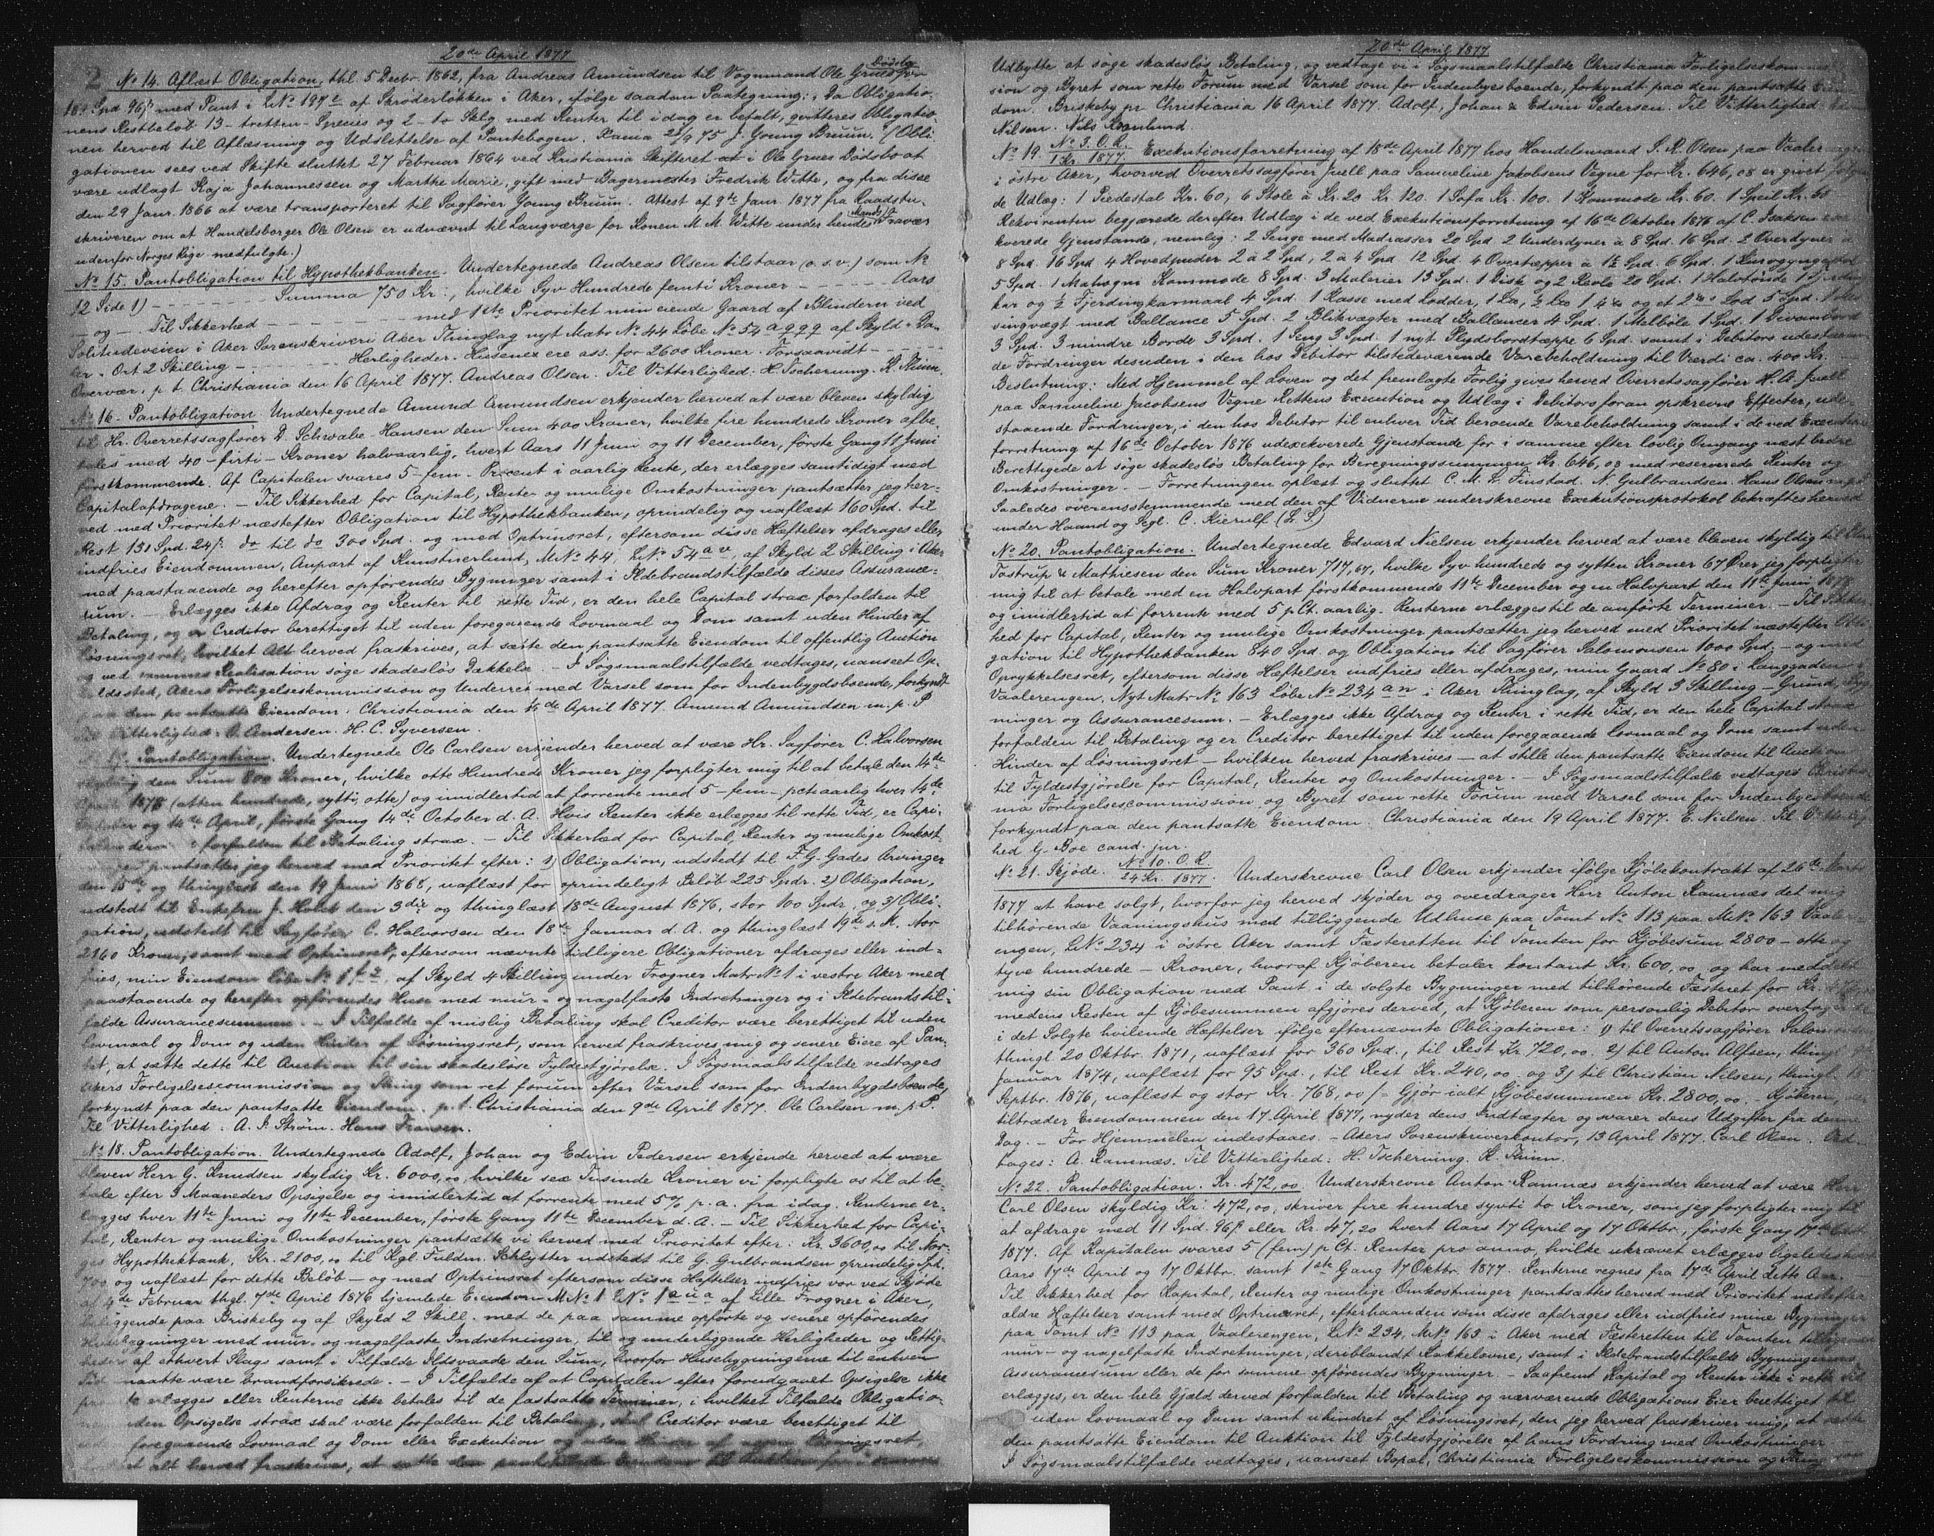 20de April 1877
2 No 14. Aflæst Obligation, thl. 5 Decbr. 1862, fra Andreas Amundsen til Vognmand Ole Grues Dødsbo for
Spd 96 β med Pant i L No 197 af Skrøderløkken i Aker, ifølge saadan Paategning: "Da Obligatio-
nens Restbeløb 13 - tretten - Species og 2 - to Skilg med Renter til idag er betalt, qvitteres Obligatio-
nen herved til Aflæsning og Udslettelse af Pantebogen. Xania 21/9 75 J. Young Bruun." (Obli-
gationen sees ved Skifte sluttet 27 Februar 1864 ved Kristiania Skifteret i Ole Grues Dødsbo at
være udlagt Kaja Johannessen og Marthe Marie, gift med Bagermester Fredrik Witte, og fra disse
den 29 Janr. 1866 at være transporteret til Sagfører Young Bruun. Attest af 9de Janr. 1877 fra Raadstu-
skriveren om at Handelsborger Ole Olsen er udnævnt til Laugværge for Konen M. M. Witte under hendes Mands Fravær
udenfor Norges Rige medfulgte.)
No 15. Pantobligation til Hypothekbanken. Undertegnede Andreas Olsen tilstaar (o.s.v.) som No
12 Side 1) - - - Summa 750 Kr., hvilke Syv Hundrede femti Kroner - - - Aars
- og - Til Sikkerhed - - - med 1ste Prioritet min eiende Gaard af Blindern ved
Solitudeveien i Aker Sorenskriveri Aker Thinglag nyt Matr No 44 Løbe No 54 a g g g af Skyld - Da-
ler - Ort 2 Skilling - - - Herligheder - Husene ere ass. for 2600 Kroner - Forsaavidt - -
Overvær, p t. Christiania den 16 April 1877. Andreas Olsen. Til Vitterlighed: H. Tscherning. K. Thiim.
No 16. Pantobligation. Undertegnede Amund Amundsen erkjender herved at være bleven skyldig
til Hr. Overretssagfører D. Schwabe-Hansen den Sum 400 Kroner, hvilke fire hundrede Kroner afbe-
tales med 40 - firti - Kroner halvaarlig, hvert Aars 11 Juni og 11 December, første Gang 11 Juni
førstkommende. Af Capitalen svares 5 - fem - Procent i aarlig Rente, der erlægges samtidigt med
Capitalafdragene. - Til Sikkerhed for Capital, Renter og mulige Omkostninger pantsætter jeg her-
ved med Prioritet næstefter Obligation til Hypothekbanken, oprindelig og uaflæst 160 Spd. til
Rest 131 Spd. 24 β, do til do 300 Spd. og med Optrinsret, eftersom disse Hæftelser afdrages eller
indfries Eiendommen, Anpart af Kunstnerlund, M No 44, L No 54 a v, af Skyld 2 Skilling i Aker
med paastaaende og herefter opførendes Bygninger samt i Ildebrandstilfælde disses Assurance-
sum. - Erlægges ikke Afdrag og Renter til rette Tid, er den hele Capital strax forfalden til
Betaling, og er Creditor berettiget til uden foregaaende Lovmaal og Dom samt uden Hinder af
Løsningsret, hvilket Alt herved fraskrives, at sætte den pantsatte Eiendom til offentlig Auction
og ved sammes Realisation søge skadesløs Dækkelse. - I Søgsmaalstilfælde vedtages, uanseet Op-
holdssted, Akers Forligelseskommission og Underret med Varsel som for Indenbygdsboende, forkyndt
paa den pantsatte Eiendom. Christiania den 15de April 1877. Amund Amundsen m. p. P
Til Vitterlighed: O. Andersen. H. C. Syversen.
17. Pantobligation. Undertegnede Ole Carlsen erkjender herved at være Hr. Sagfører C. Halvorsen
skyldig den Sum 800 Kroner, hvilke otte Hundrede Kroner jeg forpligter mig til at betale den 14de
April 1878 (atten hundrede, sytti, otte) og imidlertid at forrente med 5 - fem - pct aarlig hver 14de
October og 14de April, første Gang 14de October d. A. Hvis Renter ikke erlægges til rette Tid, er Capi-
talen derved forfalden til Betaling strax. - Til Sikkerhed for Capital, Renter og mulige Omkost-
ninger pantsætter jeg herved med Prioritet efter: 1) Obligation, udstedt til F. G. Gades Arvinger
den 15de og thinglæst den 19 Juni 1868, uaflæst for oprindeligt Beløb 225 Spdr. 2) Obligation,
udstedt til Enkefru J. Holst den 3die og thinglæst 18de August 1876, stor 100 Spdr., og 3) Obli-
gation, udstedt til Sagfører C. Halvorsen den 18de Januar d. A. og thinglæst 19de s. M. stor
2160 Kroner, samt med Optrinsret, eftersom nævnte tidligere Obligationer afdrages eller ind-
fries, min Eiendom Løbe No 1 f 2, af Skyld 4 Skilling under Frogner Matr No 1 i vestre Aker med
paastaaende og herefter opførendes Huse med mur- og nagelfaste Indretninger og i Ildebrandstil-
fælde Assurancesummen. - I Tilfælde af mislig Betaling skal Creditor være berettiget til uden
Lovmaal og Dom og uden Hinder af Løsningsret, som herved fraskrives mig og senere Eiere af Pan-
tet, at sætte dette til Auction til sin skadesløse Fyldestgjørelse. I Søgsmaalstilfælde vedtages
Akers Forligelsescommission og Thing som ret forum efter Varsel som for Indenbygdsboende,
forkyndt paa den pantsatte Eiendom. p. t. Christiania den 9de April 1877. Ole Carlsen m. p. P.
Til Vitterlighed: A. P. Strøm. Hans Fransen.
No 18. Pantobligation. Undertegnede Adolf, Johan og Edvin Pedersen erkjende herved at være
bleven Herr G. Knudsen skyldig Kr. 6000,00, hvilke sex Tusinde Kroner vi forpligte os til at be-
tale efter 3 Maaneders Opsigelse og imidlertid at forrente med 5% p. a. fra idag. Renterne er-
lægges hver 11te Juni og 11te December, første Gang 11te December d. A. - Til Sikkerhed for Capi-
tal, Renter og mulige Omkostninger pantsætte vi herved med Prioritet efter: Kr. 3600,00 til Nor-
ges Hypothekbank, Kr. 2100,00 til Kgl. Fuldm. Schlytter udstedt til G. Gulbrandsen oprindelig Spd.
700 og uaflæst for dette Beløb - og med Optrinsret eftersom disse Hæftelser indfries vor ved Skjøde
af 4de Februar thgl. 7de April 1876 hjemlede Eiendom M No 1 L No 1 a u a af Lille Frogner i Aker,
beliggende paa Briskeby og af Skyld 2 Skill. med de paa samme opførte og senere opførendes
Husebygninger med mur- og nagelfaste Indretninger, til og underliggende Herligheder og Rettig-
heder af ethvert Slags samt i Tilfælde Ildsvaade den Sum, hvorfor Husebygningerne til enhver
Tid maatte være brandforsikrede. - I Tilfælde af at Capitalen efter foreudgaaet Opsigelse ikke
erlægges eller Renterne ikke betales til de fastsatte Terminer, i hvilket Tilfælde Obligatio-
uden Opsigelse strax skal være forfalden til Betaling, skal Creditor være berettiget til
foregaaende Lovmaal og Dom eller Exekution og uden Hinder af Løsningsret,
alt herved fraskrives, at sætte den pantsatte Eiendom til Auktion for i sammes
20de April 1877
Udbytte at søge skadesløs Betaling, og vedtage vi i Søgsmaalstilfælde Christiania Forligelseskommis-
sion og Byret som rette Forum med Varsel som for Indenbyesboende, forkyndt paa den pantsatte Eien-
dom. Briskeby pr Christiania 16 April 1877. Adolf, Johan & Edvin Pedersen. Til Vitterlighed
Nilsen. Nils Kronlund.
No 19. No 3. O. R. / 1 Kr. 1877. Exekutionsforretning af 18de April 1877 hos Handelsmand S. A. Olsen paa Vaalerengen
i østre Aker, hvorved Overretssagfører Juell paa Samueline Jakobsens Vegne for Kr. 646,08 er givet følgen-
de Udlæg: 1 Piedestal Kr. 60, 6 Stole à Kr. 20 Kr. 120. 1 Sofa Kr. 100. 1 Kommode Kr. 60. 1 Speil Kr. 60
Rekvirenten begjærede derefter Udlæg i de ved Exekutionsforretning af 16de October 1876 af C. Isaksen exe-
kverede Gjenstande, nemlig: 2 Senge med Madrasser 20 Spd. 2 Underdyner à 8 Spd. 16 Spd. 2 Overdyner à
8 Spd. 16 Spd. 4 Hovedpuder 2 à 2 Spd, 2 à 4 Spd 12 Spd. 4 Overtæpper à 1½ Spd. 6 Spd. 1 Kurvgyngestol
5 Spd. 1 Mahogni Kommode 8 Spd. 3 Malerier 13 Spd. 1 Disk og 2 Reole 20 Spd. 1 Halvtønde 1 Fjerding-
kar og ½ Fjerdingkarmaal 4 Spd. 1 Kasse med Lodder, 5 Spd. 1 
vingvægt med Ballance 5 Spd. 2 Blikvægter med Ballancer 4 Spd. 1 Melbøle 1 Spd. 1 Divanbord
3 Spd. 3 mindre Borde 3 Spd. 1 Seng 3 Spd. 1 nyt Plydsbordtæppe 6 Spd. samt i Debitors udestaaen-
de Fordringer desuden i den hos Debitor tilstedeværende Varebeholdning til Værdi ca. 400 Kr.
Beslutning: Med Hjemmel af Loven og det fremlagte Forlig gives herved Overretssagfører H. A. Juell
paa Samueline Jacobsens Vegne Rettens Execution og Udlæg i Debitors foran opskrevne Effecter, ude-
staaende Fordringer, i den hos Debitor til enhver Tid beroende Varebeholdning samt i de ved Executions-
forretning af 16de October 1876 udexekverede Gjenstande for i samme efter lovlig Omgang næst bedre
Berettigede at søge skadesløs Betaling for Beregningssummen Kr. 646,08 med reserverede Renter og
Omkostninger. - Forretningen oplæst og sluttet. C. M. L. Finstad. N. Gulbrandsen. Hans Olsen m. p. P.
Saaledes overensstemmende med den af Vidnerne underskrevne Exekutionsprotokol bekræftes herved
under Haand og Segl. C. Kierulf (L. S.)
No 20. Pantobligation. Undertegnede Edvard Nielsen erkjender herved at være bleven skyldig til
Tostrup & Mathiesen den Sum Kroner 717,67, hvilke Syv hundrede og sytten Kroner 67 Øre jeg forpligter
mig til at betale med en Halvpart førstkommende 11te December og en Halvpart den 11te Juni 1878
og imidlertid at forrente med 5 pCt. aarlig. Renterne erlægges til de anførte Terminer. - Til Sikker-
hed for Capital, Renter og mulige Omkostninger pantsætter jeg herved med Prioritet næstefter Obli-
gation til Hypothekbanken 840 Spd. og Obligation til Sagfører Salomonsen 1000 Spd. - og med
Oprykkelsesret, eftersom disse Hæftelser indfries eller afdrages, min Gaard No 80 i Langgaden
Vaalerengen. Nyt Matr No 163 Løbe No 234 a n i Aker Thinglag, af Skyld 3 Skilling - Grund, Byg-
ninger og Assurancesum. - Erlægges ikke Afdrag og Renter i rette Tid, er den hele Capital strax
forfalden til Betaling og er Creditor berettiget til uden foregaaende Lovmaal og Dom samt uden
Hinder af Løsningsret - hvilken herved fraskrives - at stille den pantsatte Eiendom til Auction
til Fyldestgjørelse for Capital, Renter og Omkostninger. - I Søgsmaalstilfælde vedtages Christia-
nia Forligelsescommission og Byret som rette Forum med Varsel som for Indenbyesboende
forkyndt paa den pantsatte Eiendom. Christiania den 19 April 1877. E. Nielsen. Til Vitterlig-
hed G. Boe cand. jur.
No 21. Skjøde. No 10. O. R. / 24 Kr. 1877. Underskrevne Carl Olsen erkjender ifølge Kjøbekontrakt af 26de Marts
1877 at have solgt, hvorfor jeg herved skjøder og overdrager Herr Anton Ramnæs det mig
tilhørende Vaaningshus med tilliggende Udhuse paa Tomt No 113 paa M No 163 Vaaler-
engen, L No 234 i østre Aker samt Fæsteretten til Tomten for Kjøbesum 2800 - otte og
tyve hundrede - Kroner, hvoraf Kjøberen betaler kontant Kr. 600,00 og har meddelt
mig sin Obligation med Pant i de solgte Bygninger med tilhørende Fæsteret for Kr.
medens Resten af Kjøbesummen afgjøres derved, at Kjøberen som personlig Debitor overtager
i det Solgte hvilende Hæftelser ifølge efternævnte Obligationer: 1) til Overretssagfører Salomonsen
thingl 20 Oktbr. 1871, uaflæst for 360 Spd., til Rest Kr 720,00. 2) til Anton Alfsen, thingl.
Januar 1874, uaflæst for 95 Spd., til Rest Kr. 240,00 og 3) til Christian Nilsen, thingl. 15
Septbr. 1876, uaflæst og stor Kr. 768,00 /= Gjør ialt Kjøbesummen Kr. 2800,00. - Kjøberen,
tiltræder Eiendommen den 17. April 1877, nyder dens Indtægter og svarer dens Udgifter fra denne
Dag. - For Hjemmelen indestaaes. - Akers Sorenskriverkontor, 13 April 1877. Carl Olsen. Ved-
tages: A. Ramnæs. Til Vitterlighed: H. Tscherning. K. Thiim.
No 22. Pantobligation. Kr. 472,00. Underskrevne Anton Ramnæs erkjender herved at være Herr
Carl Olsen skyldig Kr. 472,00, skriver fire hundre sytti to Kroner, som jeg forpligter mig til
at afdrage med 11 Spd. 96 β eller Kr 47,20 hvert Aars 17 April og 17 Oktbr., første Gang 17de Oktbr
1877. Af Kapitalen svares 5 (fem) p Ct. Renter pro anno, hvilke ukrævet erlægges ligeledes hvert
Aars 17de April og 17 Oktbr. samt 1ste Gang 17 Oktbr. 1877. Renterne regnes fra 17de April dette Aar.
Til Sikkerhed for Kapital, Renter og mulige Omkostninger pantsættes herved med Prioritet næstefter
ældre Hæftelser samt med Optrinsret, efterhaanden som disse afdrages eller indfries mine Bygninger
paa Tomt No 113 paa Vaalerengen, L No 234, M No 163 i Aker med Fæsteretten til Tomten tilligemed
mur- og nagelfaste Indretninger, deriblandt Kakkelovne, samt i Ildebrandstilfælde Bygningernes
Assurancesum eller de for samme opførendes Bygninger. - Saafremt Kapital og Renter ikke i rette Tid
erlægges, er den hele Gjæld derved forfalden til Betaling og nærværende Obligations Eier berettiget til
uden Lovmaal og Dom samt uhindret af Løsningsret, den jeg herved fraskriver mig, at sætte
den pantsatte Eiendom til Auktion til Fyldestgjørelse af hans Fordring med Omkostninger
I Søgsmaalstilfælde vedtages, uanseet Bopæl, Christiania Forligelseskommission og Thing som